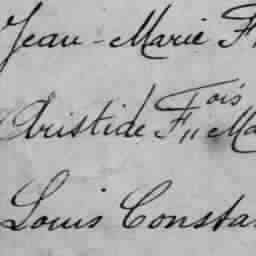 Jean-Marie F
Aristide Fçois Ma
Louis Consta